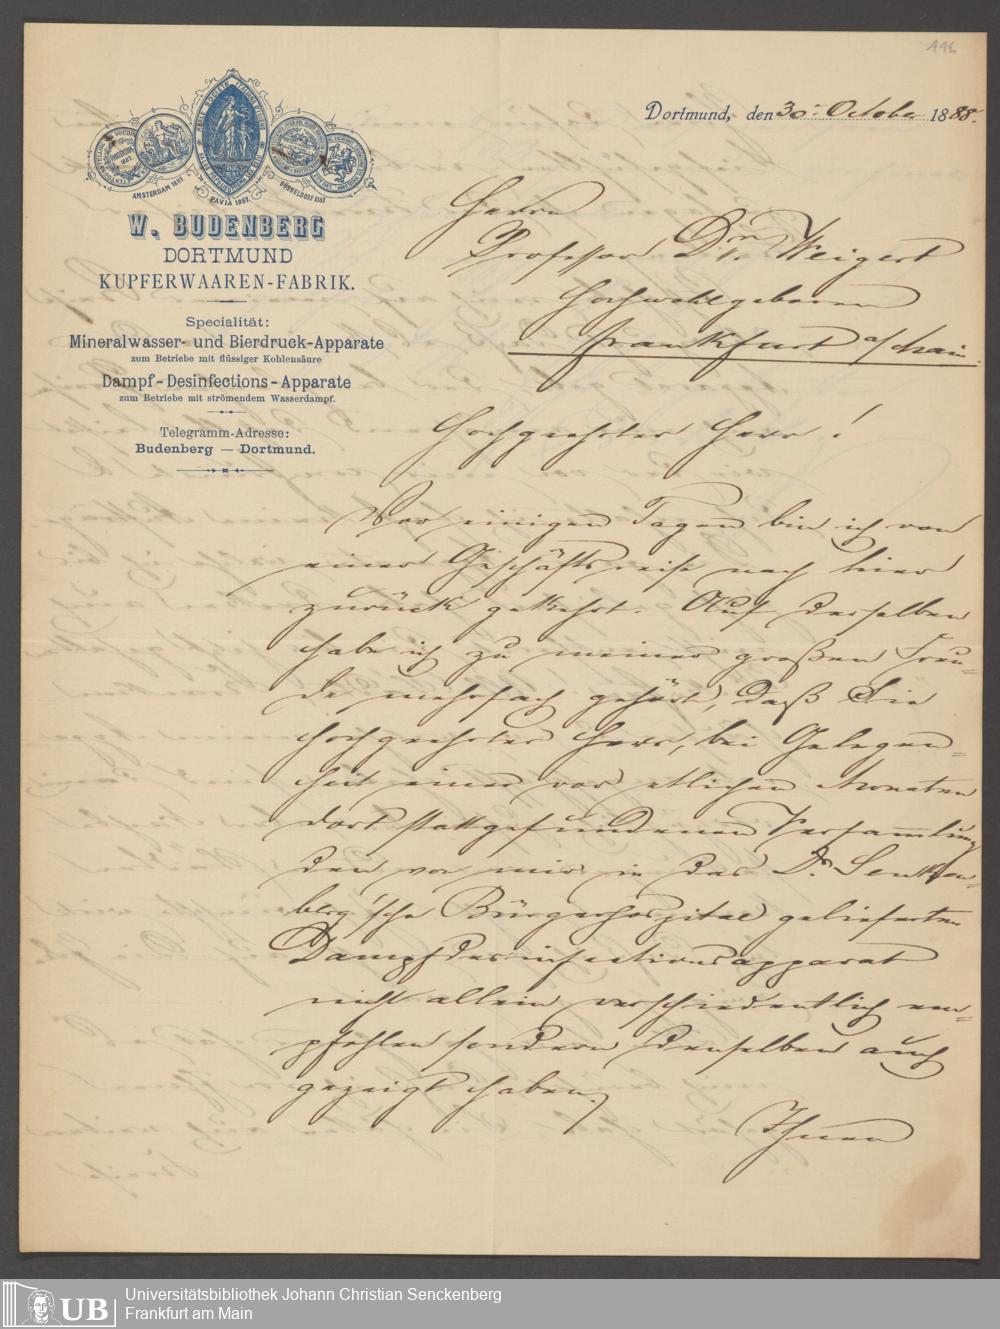 116
Dortmund, den 30. October 1888.
AMSTERDAM 1887
PAVIA 1887.
DÜSSELDORF 1887
W. BUDENBERG
DORTMUND
KUPFERWAAREN-FABRIK.
Specialität:
Mineralwasser- und Bierdruck-Apparate
zum Betriebe mit flüssiger Kohlensäure
Dampf-Desinfections-Apparate
zum Betriebe mit strömendem Wasserdampf.
Telegramm-Adresse:
Budenberg — Dortmund.
Herrn
Professor Dr. Weigert
Hochwohlgeboren
Frankfurt a/Main.
Hochgeehrter Herr!
Vor einigen Tagen bin ich von
einer Geschäftsreise nach hier
zurück gekehrt. Auf derselben
habe ich zu meiner großen Freu=
de mehrfach gehört, daß Sie
hochgeehrter Herr, bei Gelegen=
heit einer vor etlichen Monaten
dort stattgefundenen Versammlung
den von mir in das Dr. Senken=
berg'sche Bürgerhospital gelieferten
Dampfdesinfectionsapparat
nicht allein verschiedentlich em=
pfohlen sondern denselben auch
gezeigt haben.
Ihnen
Universitätsbibliothek Johann Christian Senckenberg
Frankfurt am Main
UB